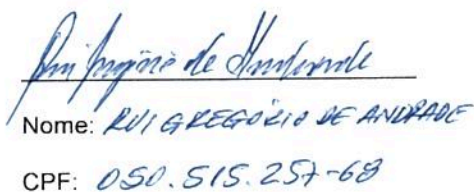 Rui Gregório de Andrade
Nome: RUI GREGÓRIO DE ANDRADE
CPF: 050.515.257-68